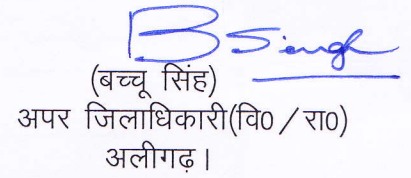 B Singh
(बच्चू सिंह)
अपर जिलाधिकारी(वि0/रा0)
अलीगढ़।